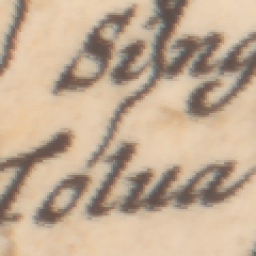 Sing
Tolua